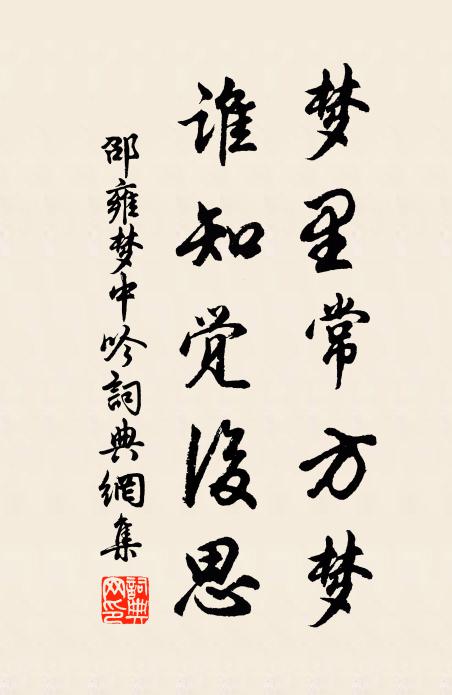 梦里常方梦
谁知觉後思
邵雍梦中吟詞典網集
詞典网印